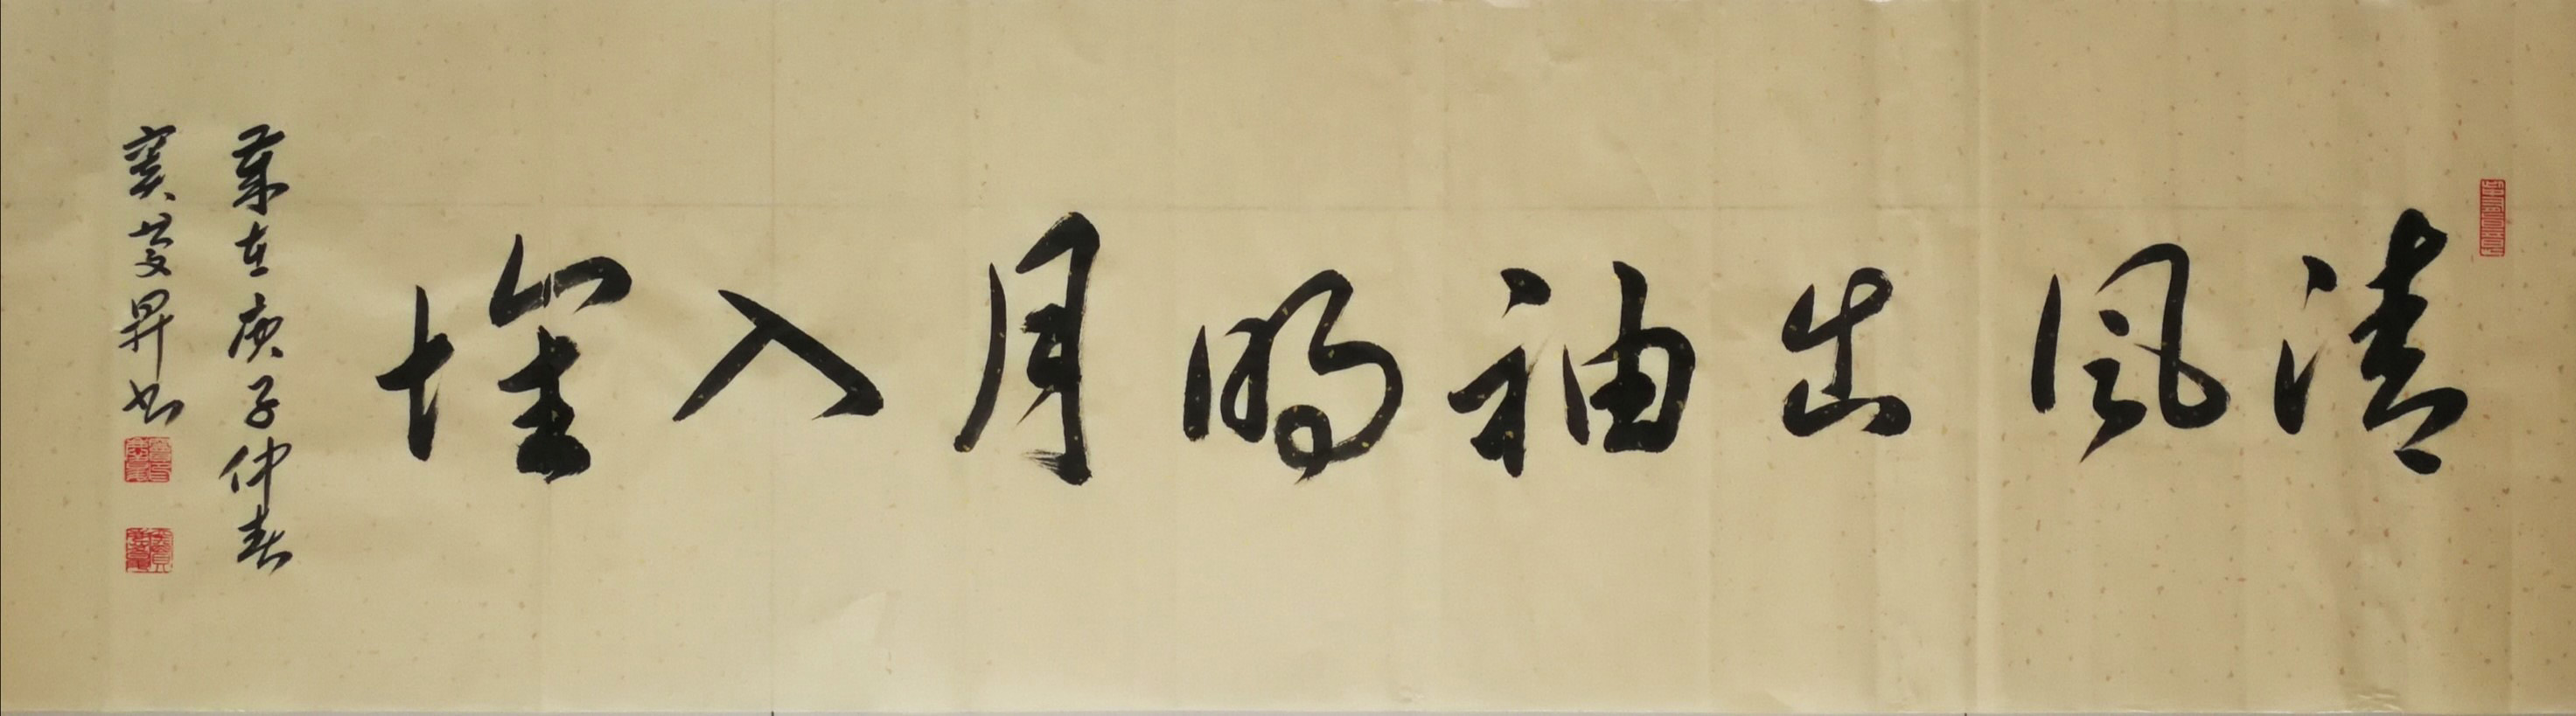 清風出袖明月入懷
歲在庚子仲春
竇慶昇书